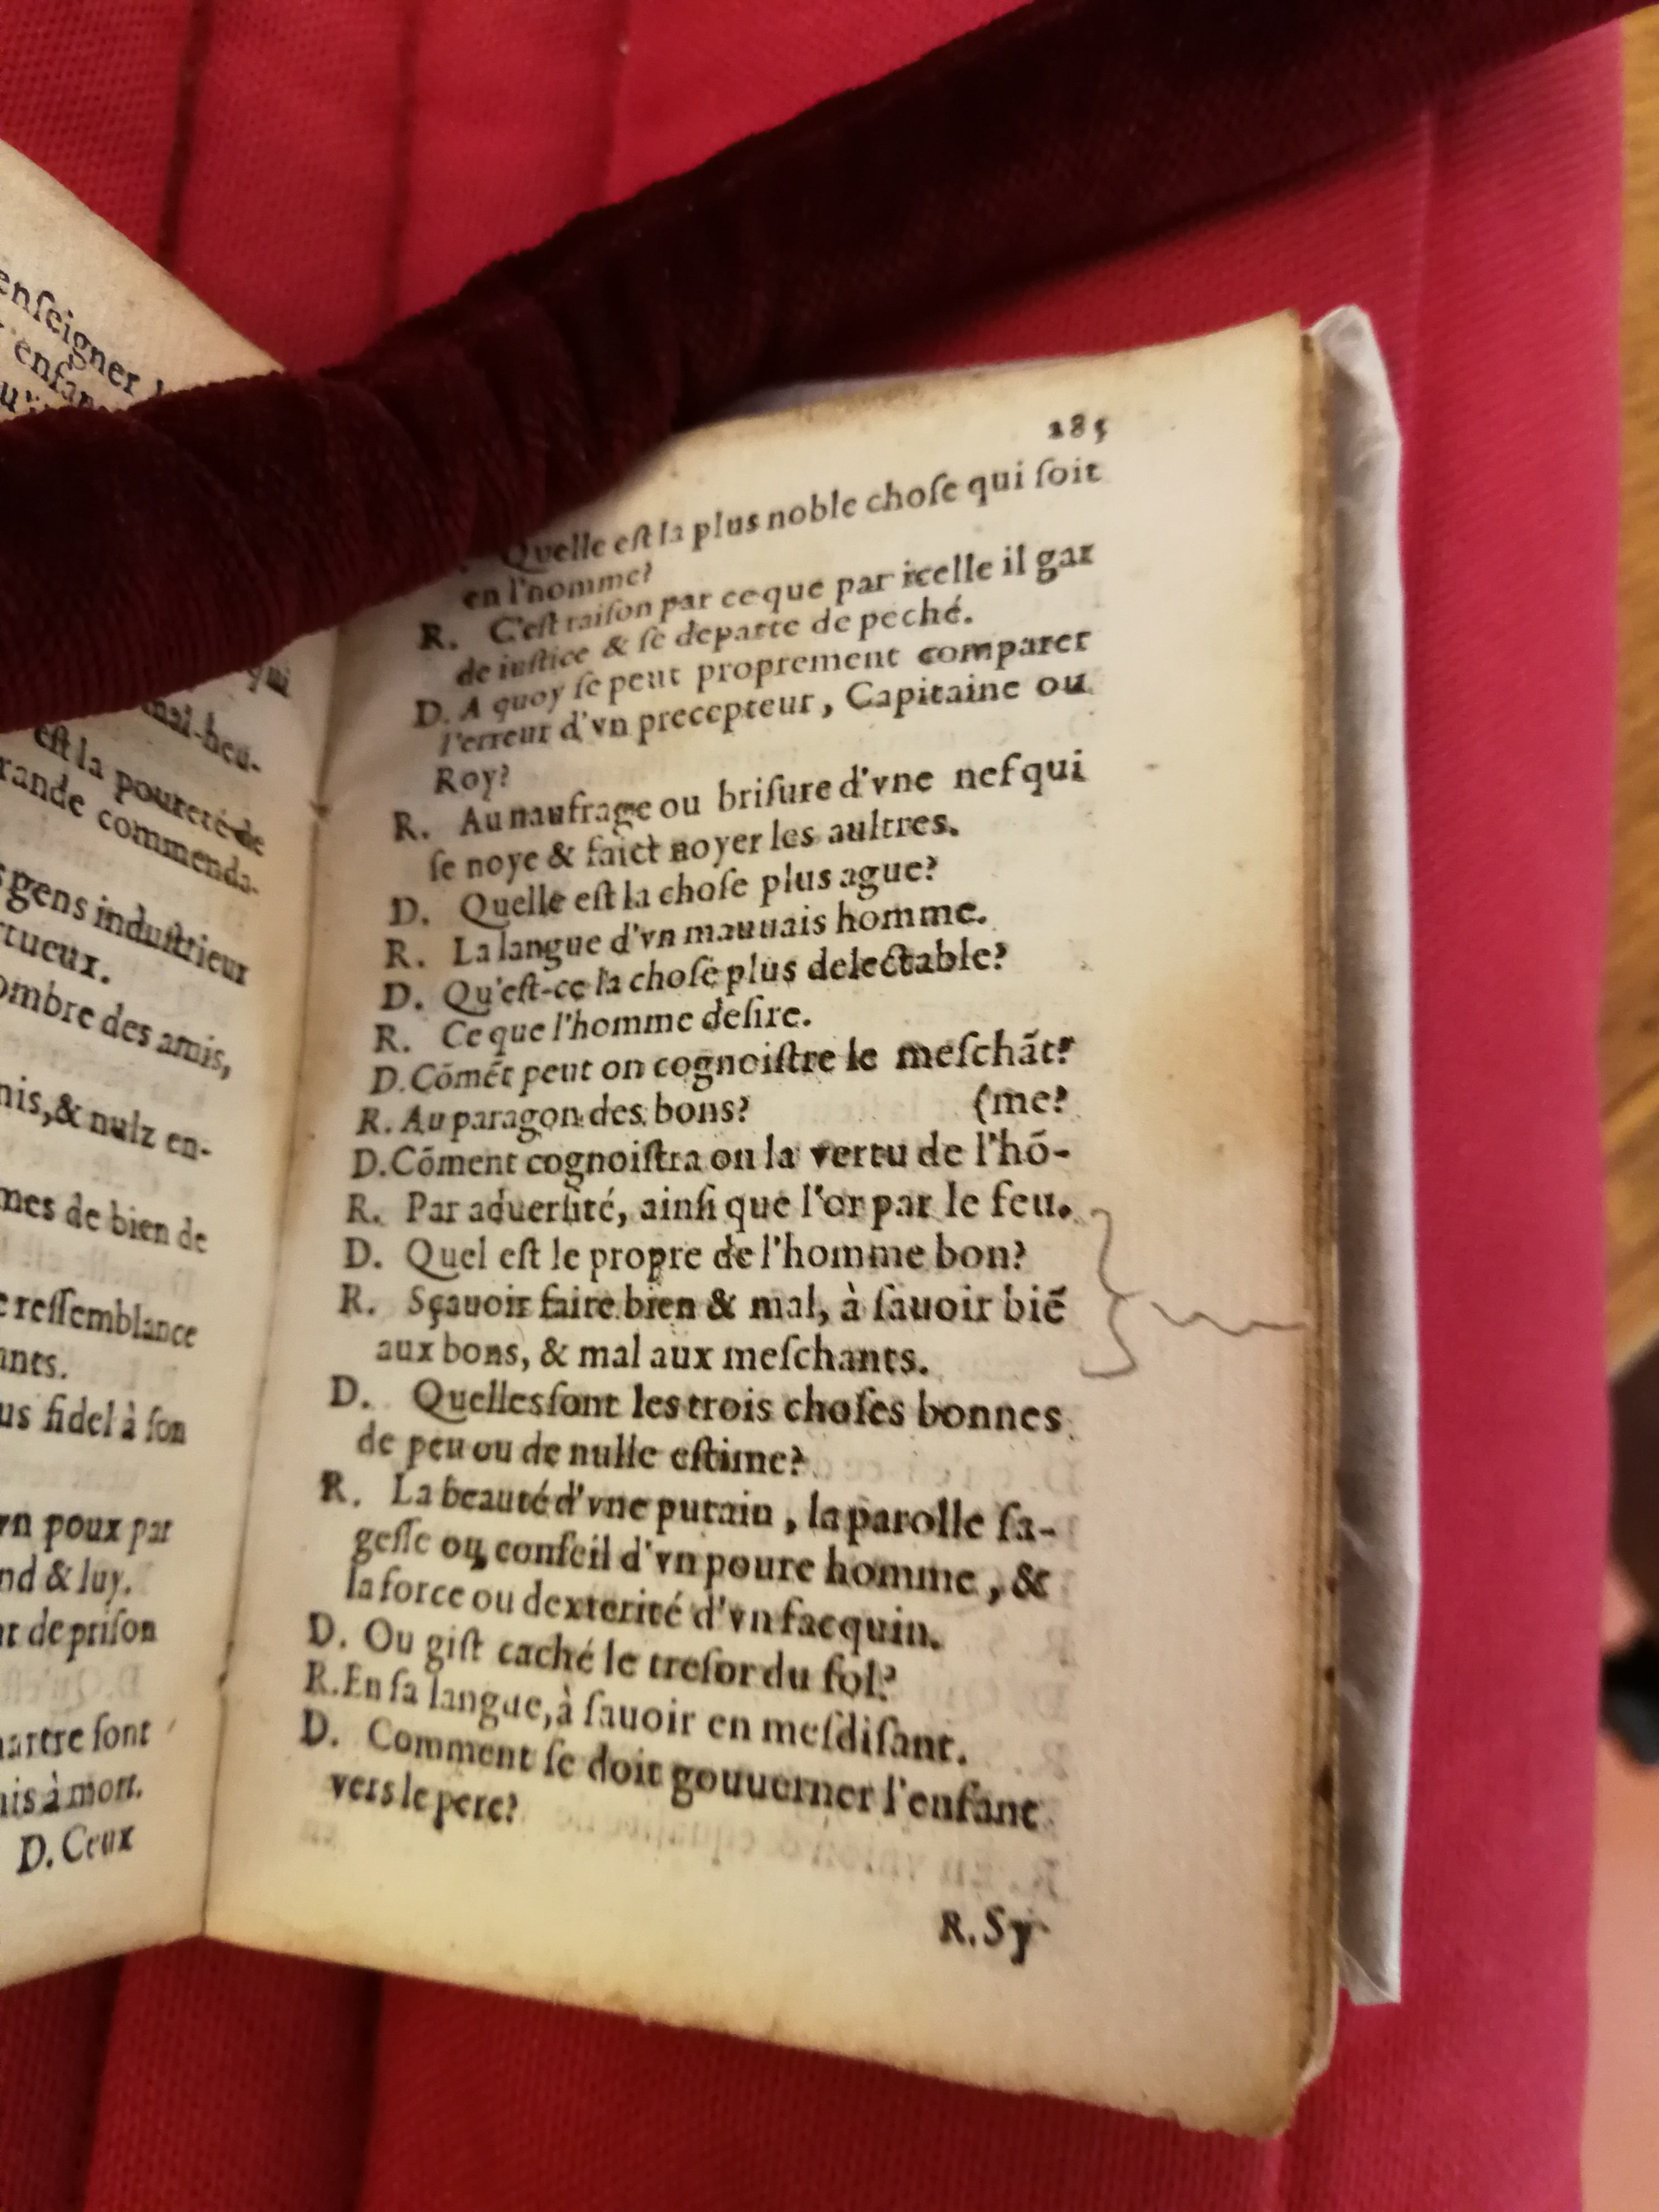 enſeigner
enfan
qui
mal-heu-
eſt la poureté de
rande commenda-
gens induſtrieux
rtueux.
ombre des amis,
nis, & nulz en-
mes de bien de
e reſſemblance
ants.
us fidel à ſon
vn poux par
nd & luy.
nt de priſon
hartre ſont
nis à mort.
D. Ceux
285
Quelle eſt la plus noble choſe qui ſoit
en l'homme?
R. C'eſt raiſon par ce que par icelle il gar
de iuſtice & ſe departe de peché.
D. A quoy ſe peut proprement comparer
l'erreur d'vn precepteur, Capitaine ou
Roy?
R. Au naufrage ou briſure d'vne nef qui
ſe noye & faict noyer les aultres.
D. Quelle eſt la choſe plus ague?
R. La langue d'vn mauuais homme.
D. Qu'eſt-ce la choſe plus delectable?
R. Ce que l'homme deſire.
D. Cōmēt peut on cognoiſtre le meſchāt?
R. Au paragon des bons? (me?
D. Cōment cognoiſtra on la vertu de l'hō-
R. Par aduerſité, ainſi que l'or par le feu.
D. Quel eſt le propre de l'homme bon?
R. Sçauoir faire bien & mal, à ſauoir biē
aux bons, & mal aux meſchants.
D. Quelles ſont les trois choſes bonnes
de peu ou de nulle eſtime?
R. La beauté d'vne putain, la parolle ſa-
geſſe ou conſeil d'vn poure homme, &
la force ou dexterité d'vn facquin.
D. Ou giſt caché le treſor du fol?
R. En ſa langue, à ſauoir en meſdiſant.
D. Comment ſe doit gouuerner l'enfant
vers le pere?
R. Sy